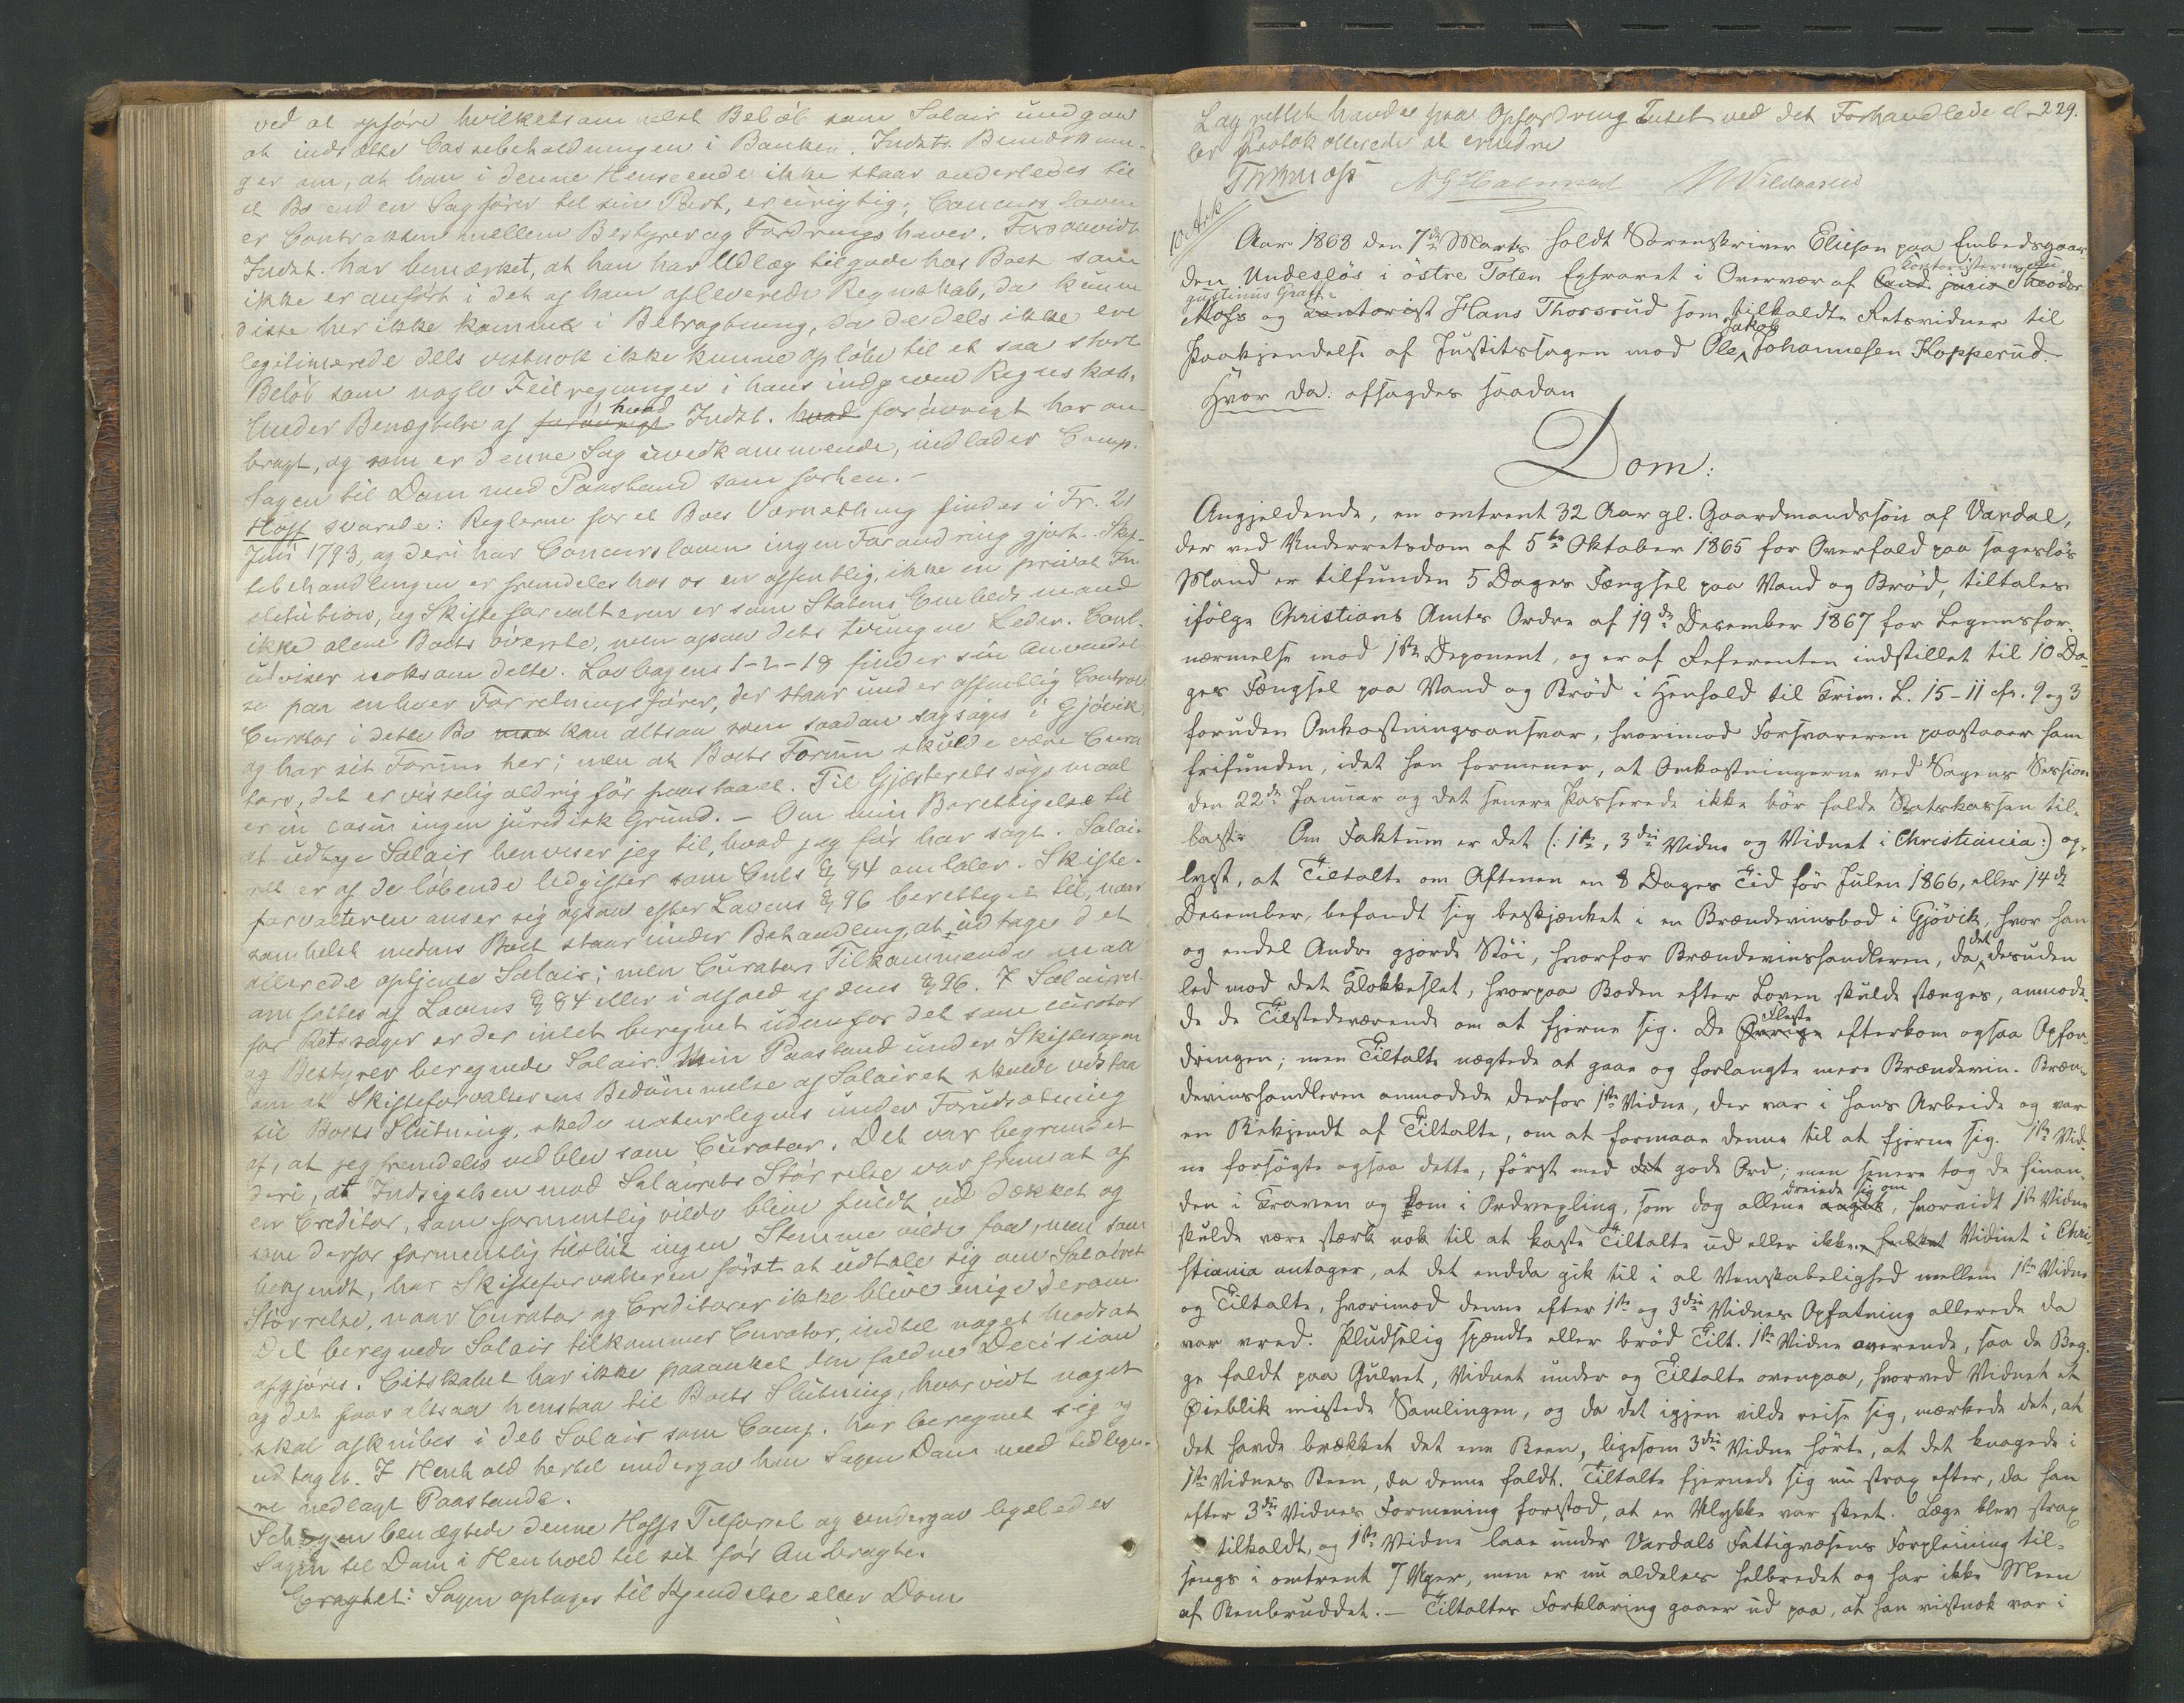 ved at opføre hvilketsomhelst Beløb som Salair undgaa
at indsætte Cassebeholdningen i Banken. Indst. Bemærknin-
ger om, at han i denne Henseende ikke staar anderledes til
et Bo end en Sagfører til sin Part, er urigtig; Concurs Loven
er Contrakten mellem Bestyrer og Fordringshaver. Forsaavidt
Indst. har bemærket, at han har Udlæg tilgode hos Boet som
ikke er anført i det af ham afleverede Regnskab, da kunne
disse her ikke komme i Betragtning, da de dels ikke ere
legitimerede dels vistnok ikke kunne opløbe til et saa stort
Beløb som nogle Feilregninger i hans indgivne Regnskab.
Under Benægtelse af forøvrigt hvad Indst. hvad forøvrigt har an-
bragt, og som er denne Sag uvedkommende, indlader Comp.
Sagen til Dom med Paastand som forhen.-
Hoff svarede: Reglerne for et Boes Varnething findes i Fr. 21
Juni 1793, og deri har Concursloven ingen Forandring gjort. Skif-
tebehandlingen er fremdeles hos os en offentlig, ikke en privat In-
stitution, og Skifteforvalteren er som Statens Embedsmand
ikke alene Boets øverste, men ogsaa dets tvungne Leder. Cont.
udviser noksom dette. Lovbogens 1-2-18 finder sin Anvendel-
se paa enhver Forretningsfører, der staar under offentlig Control.
Curator i dette Bo man kan altsaa som saadan sagsøges i Gjøvik
og har sit Forum her; men at Boets Forum skulde være Cura-
tors, det er visselig aldrig før paastaaet. Til Gjæsteretssøgsmaal
er in casu ingen juridisk Grund. - Om min Berettigelse til
at udtage Salair henviser jeg til, hvad jeg før har sagt. Salai-
ret er af de løbende Udgifter som Cncls § 84 omtaler. Skifte-
forvalteren anser sig ogsaa efter Lovens § 96 berettiget til, naar
somhelst medens Boet staar under Behandling, at udtage det
allerede optjente Salair; men Curators Tilkommende maa
omfattes af Lovens § 84 eller i alfald af dens § 96. I Salairet
for Retssager er der intet beregnet udenfor det som Curator
og Bestyrer beregnede Salair. Min Paastand under Skiftesagen
om at Skifteforvalterens Bedømmelse af Salairet skulde udstaa
til Boets Slutning, skede naturligvis under Forudsætning
af, at jeg fremdeles vedblev som Curator. Det var begrundet
deri, at Indsigelsen mod Salairets Størrelse var fremsat af
en Creditor, som formentlig vilde blive fuldt ud dækket og
som derfor formentlig tilslut ingen Stemme vilde faa, men som
bekjendt, har Skifteforvalteren først at udtale sig om Salairet
Størrelse, naar Curator og Creditorer ikke blive enige derom.
Det beregnede Salair tilkommer Curator, indtil noget modsat
afgjøres. Citskabet har ikke paaanket den faldne Decision
og det faar altsaa henstaa til Boets Slutning, hvorvidt noget
skal afknibes i det Salair som Comp. har beregnet sig og
udtaget. I Henhold hertil undergav han Sagen Dom med tidlige-
re nedlagt Paastande.
Schøyen benægtede denne Hoffs Tilførsel og undergav ligeledes
Sagen til Dom i Henhold til sit før Anbragte.
Eragtet: Sagen optages til Kjendelse eller Dom
229.
Lagrettet havde paa Opfordring Intet ved det Forhandlede el-
ler Protokollerede at erindre
Aar 1868 den 7de Marts holdt Sorenskriver Elieson paa Embedsgaar-
den Undeslös i östre Toten Extraret i Overvær af Cand. juris Theodor Kontoristerne
Justinus Graff
Moss og Contorist Hans Thorsrud som tilkaldte Retsvidner til
Paakjendelse af Justitssagen mod Ole Jakob Johannesen Kopperud.
Hvor da: afsagdes saadan
Dom:
Angjeldende, en omtrent 32 Aar gl. Gaardmandssön af Vardal,
der ved Underretsdom af 5te Oktober 1865 for Overfald paa sageslös
Mand er tilfunden 5 Dages Fængsel paa Vand og Bröd, tiltales
ifölge Christians Amts Ordre af 19de December 1867 for Legemsfor-
nærmelse mod 1ste Deponent, og er af Referenten indstillet til 10 Da-
ges Fængsel paa Vand og Bröd i Henhold til Krim. L. 15-11 cfr. 9 og 3
foruden Omkostningsansvar, hvorimod Forsvareren paastaaer ham
frifunden, idet han formener, at Omkostningerne ved Sagens Session
den 22de Januar og det senere Passerede ikke bör falde Statskassen til-
last. Om Faktum er det (: 1ste, 3die Vidne og Vidnet i Christiania :) op-
lyst, at Tiltalte om Aftenen en 8 Dages Tid för Julen 1866, eller 14de
December, befandt sig beskjænket i en Brændevinsbod i Gjövik, hvor han
og endel Andre gjorde Stöi, hvorfor Brændevinshandleren, da det desuden
led mod det Klokkeslet, hvorpaa Boden efter Loven skulde stænges, anmode-
de de Tilstedeværende om at fjerne sig. De Øvrige Fleste efterkom ogsaa Opfor-
dringen; men Tiltalte nægtede at gaa og forlangte mere Brændevin. Bræn-
devinshandleren anmodede derfor 1ste Vidne, der var i hans Arbeide og var
en Bekjendt af Tiltalte, om at formaae denne til at fjerne sig. 1ste Vid-
ne forsögte ogsaa dette, först med det gode Ord; men senere tog de hinan-
den i Kraven og kom i Ordvexling, som dog allene angik dreiede sig om, hvorvidt 1ste Vidne
skulde være stærk nok til at kaste Tiltalte ud eller ikke. Vidnet i Chri-
stiania antager, at det endda gik til i al Venskabelighed mellem 1ste Vidne
og Tiltalte, hvorimod denne efter 1ste og 3die Vidnes Opfatning allerede da
var vred. Pludselig spændte eller bröd Tilt. 1ste Vidne overende, saa de Beg-
ge faldt paa Gulvet, Vidnet under og Tiltalte ovenpaa, hvorved Vidnet et
Øieblik mistede Samlingen, og da det igjen vilde reise sig, mærkede det, at
det havde brækket det ene Been, ligesom 3die Vidne hörte, at det knagede i
1ste Vidnes Been, da denne faldt. Tiltalte fjernede sig nu strax efter, da han
efter 3die Vidnes Formening forstod, at en Ulykke var skeet. Læge blev strax
tilkaldt, og 1ste Vidne laae under Vardals Fattigvæsens Forpleining til-
sengs i omtrent 7 Uger, men er nu aldeles helbredet og har ikke Meen
af Benbruddet. - Tiltaltes Forklaring gaaer ud paa, at han vistnok var i